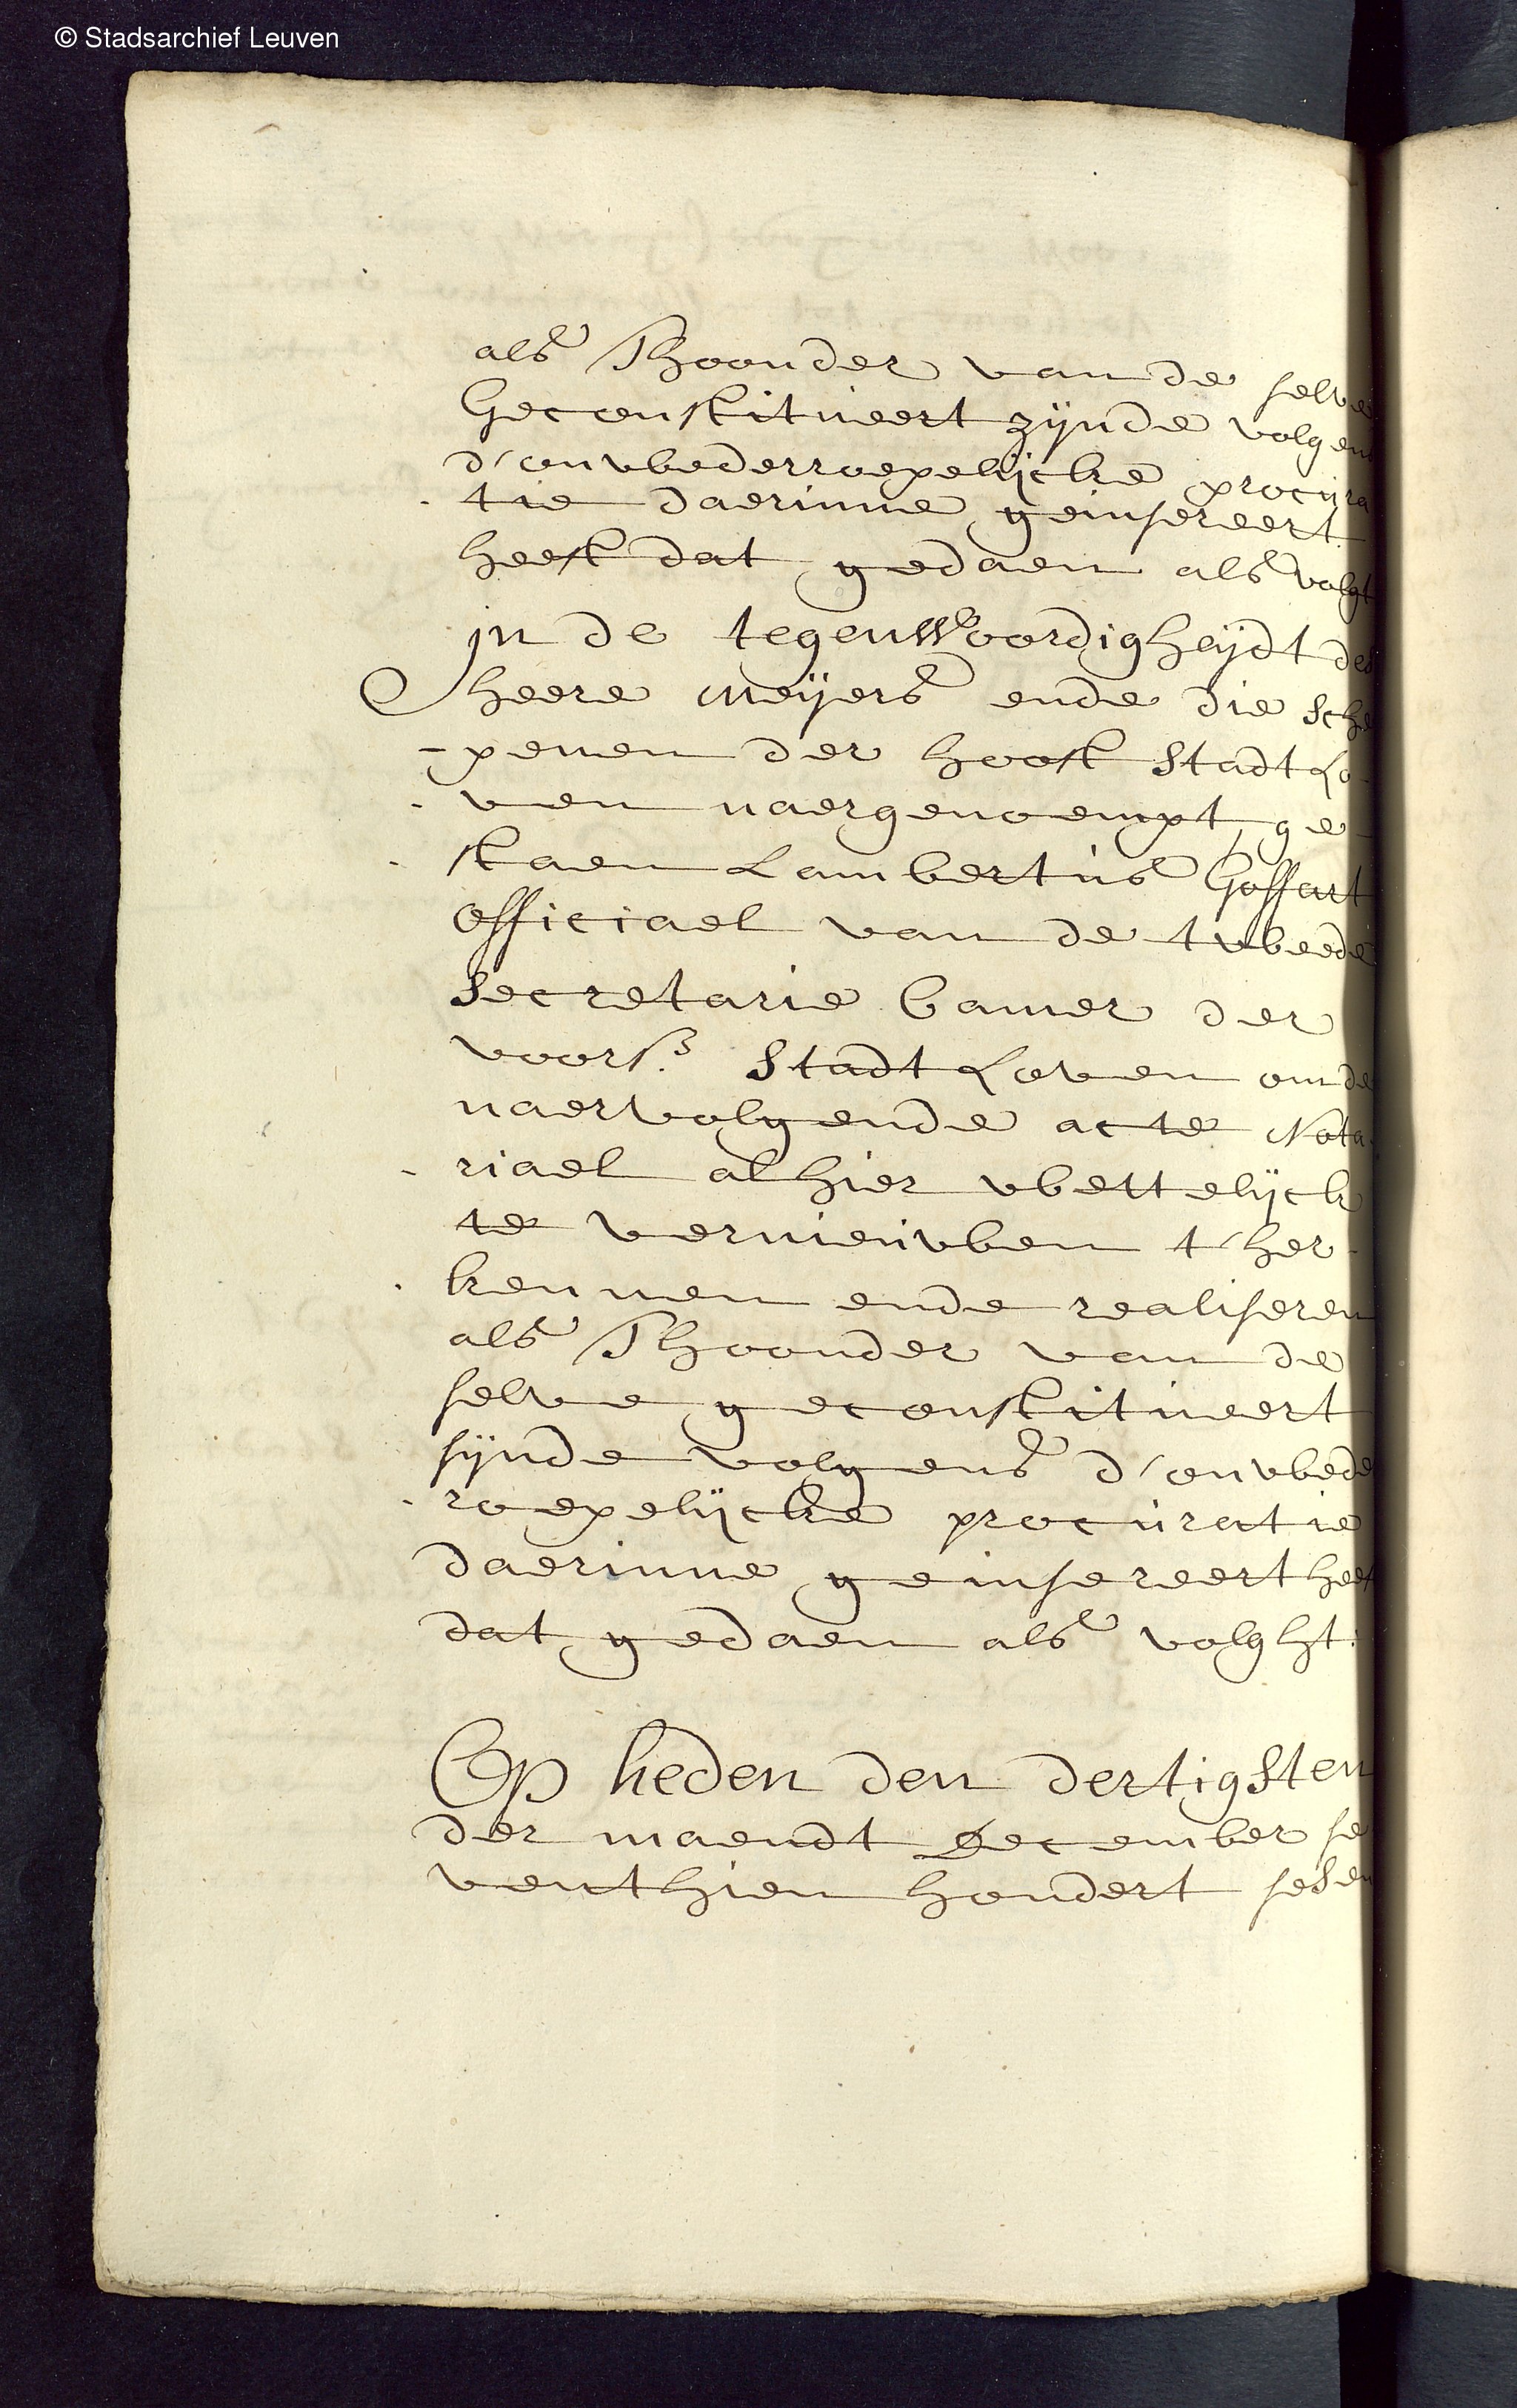 © Stadsarchief Leuven
als Thoonder van de selve
Geconstitueert zijnde volgens
d'onwederroepelijcke procura
tie daerinne geinsereert
heeft dat gedaen als volgt
in de tegenwoordigheijdt des
heere meijers ende die sche
-penen der hooft stadt Lo-
-ven naergenoempt, ge-
-staen Lambertus Goffart
officiael van de tweede
secretarie Camer der
voors. stadt Loven om de
naervolgende acte Nota-
-riael alhier wettelijck
te vernieuwen t'her-
-kennen ende realiseren
als Thoonder van de
selve geconstitueert
sijnde volgens d'onwede
-roepelijcke procuratie
daerinne geinsereert heeft
dat gedaen als volght.
Op heden den dertigsten
der maendt December se
venthien hondert sesen